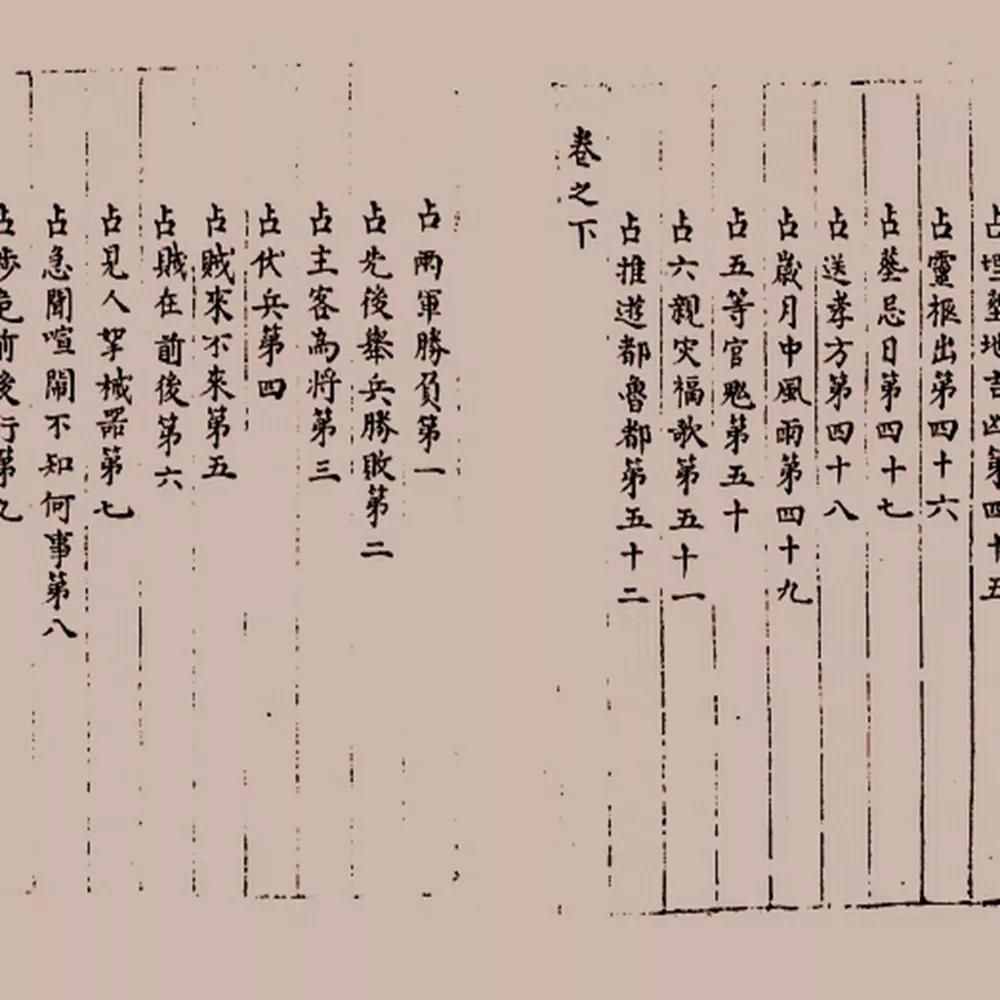 占埋墓地吉凶第四十五
占靈柩出第四十六
占墓忌日第四十七
占送孝方第四十八
占歲月中風雨第四十九
占五等官鬼第五十
占六親灾福歌第五十一
占推遊都魯都第五十二
卷之下
占兩軍勝負第一
占先後舉兵勝敗第二
占主客為将第三
占伏兵第四
占賊來不來第五
占賊在前後第六
占見人拏械器第七
占急聞喧鬧不知何事第八
占涉危前後行第九